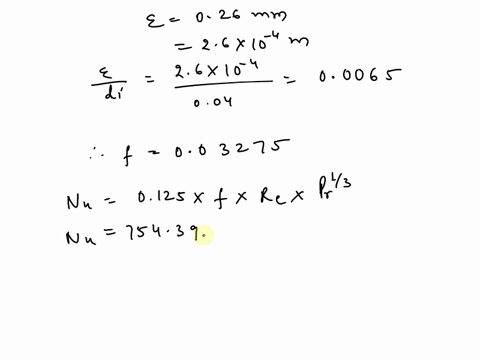 ε = 0.26 mm
= 2.6 × 10⁻⁴ m
ε/di = 2.6 × 10⁻⁴/0.04 = 0.0065
∴ f = 0.03275
Nu = 0.125 × f × Re × Pr^1/3
Nu = 754.39.